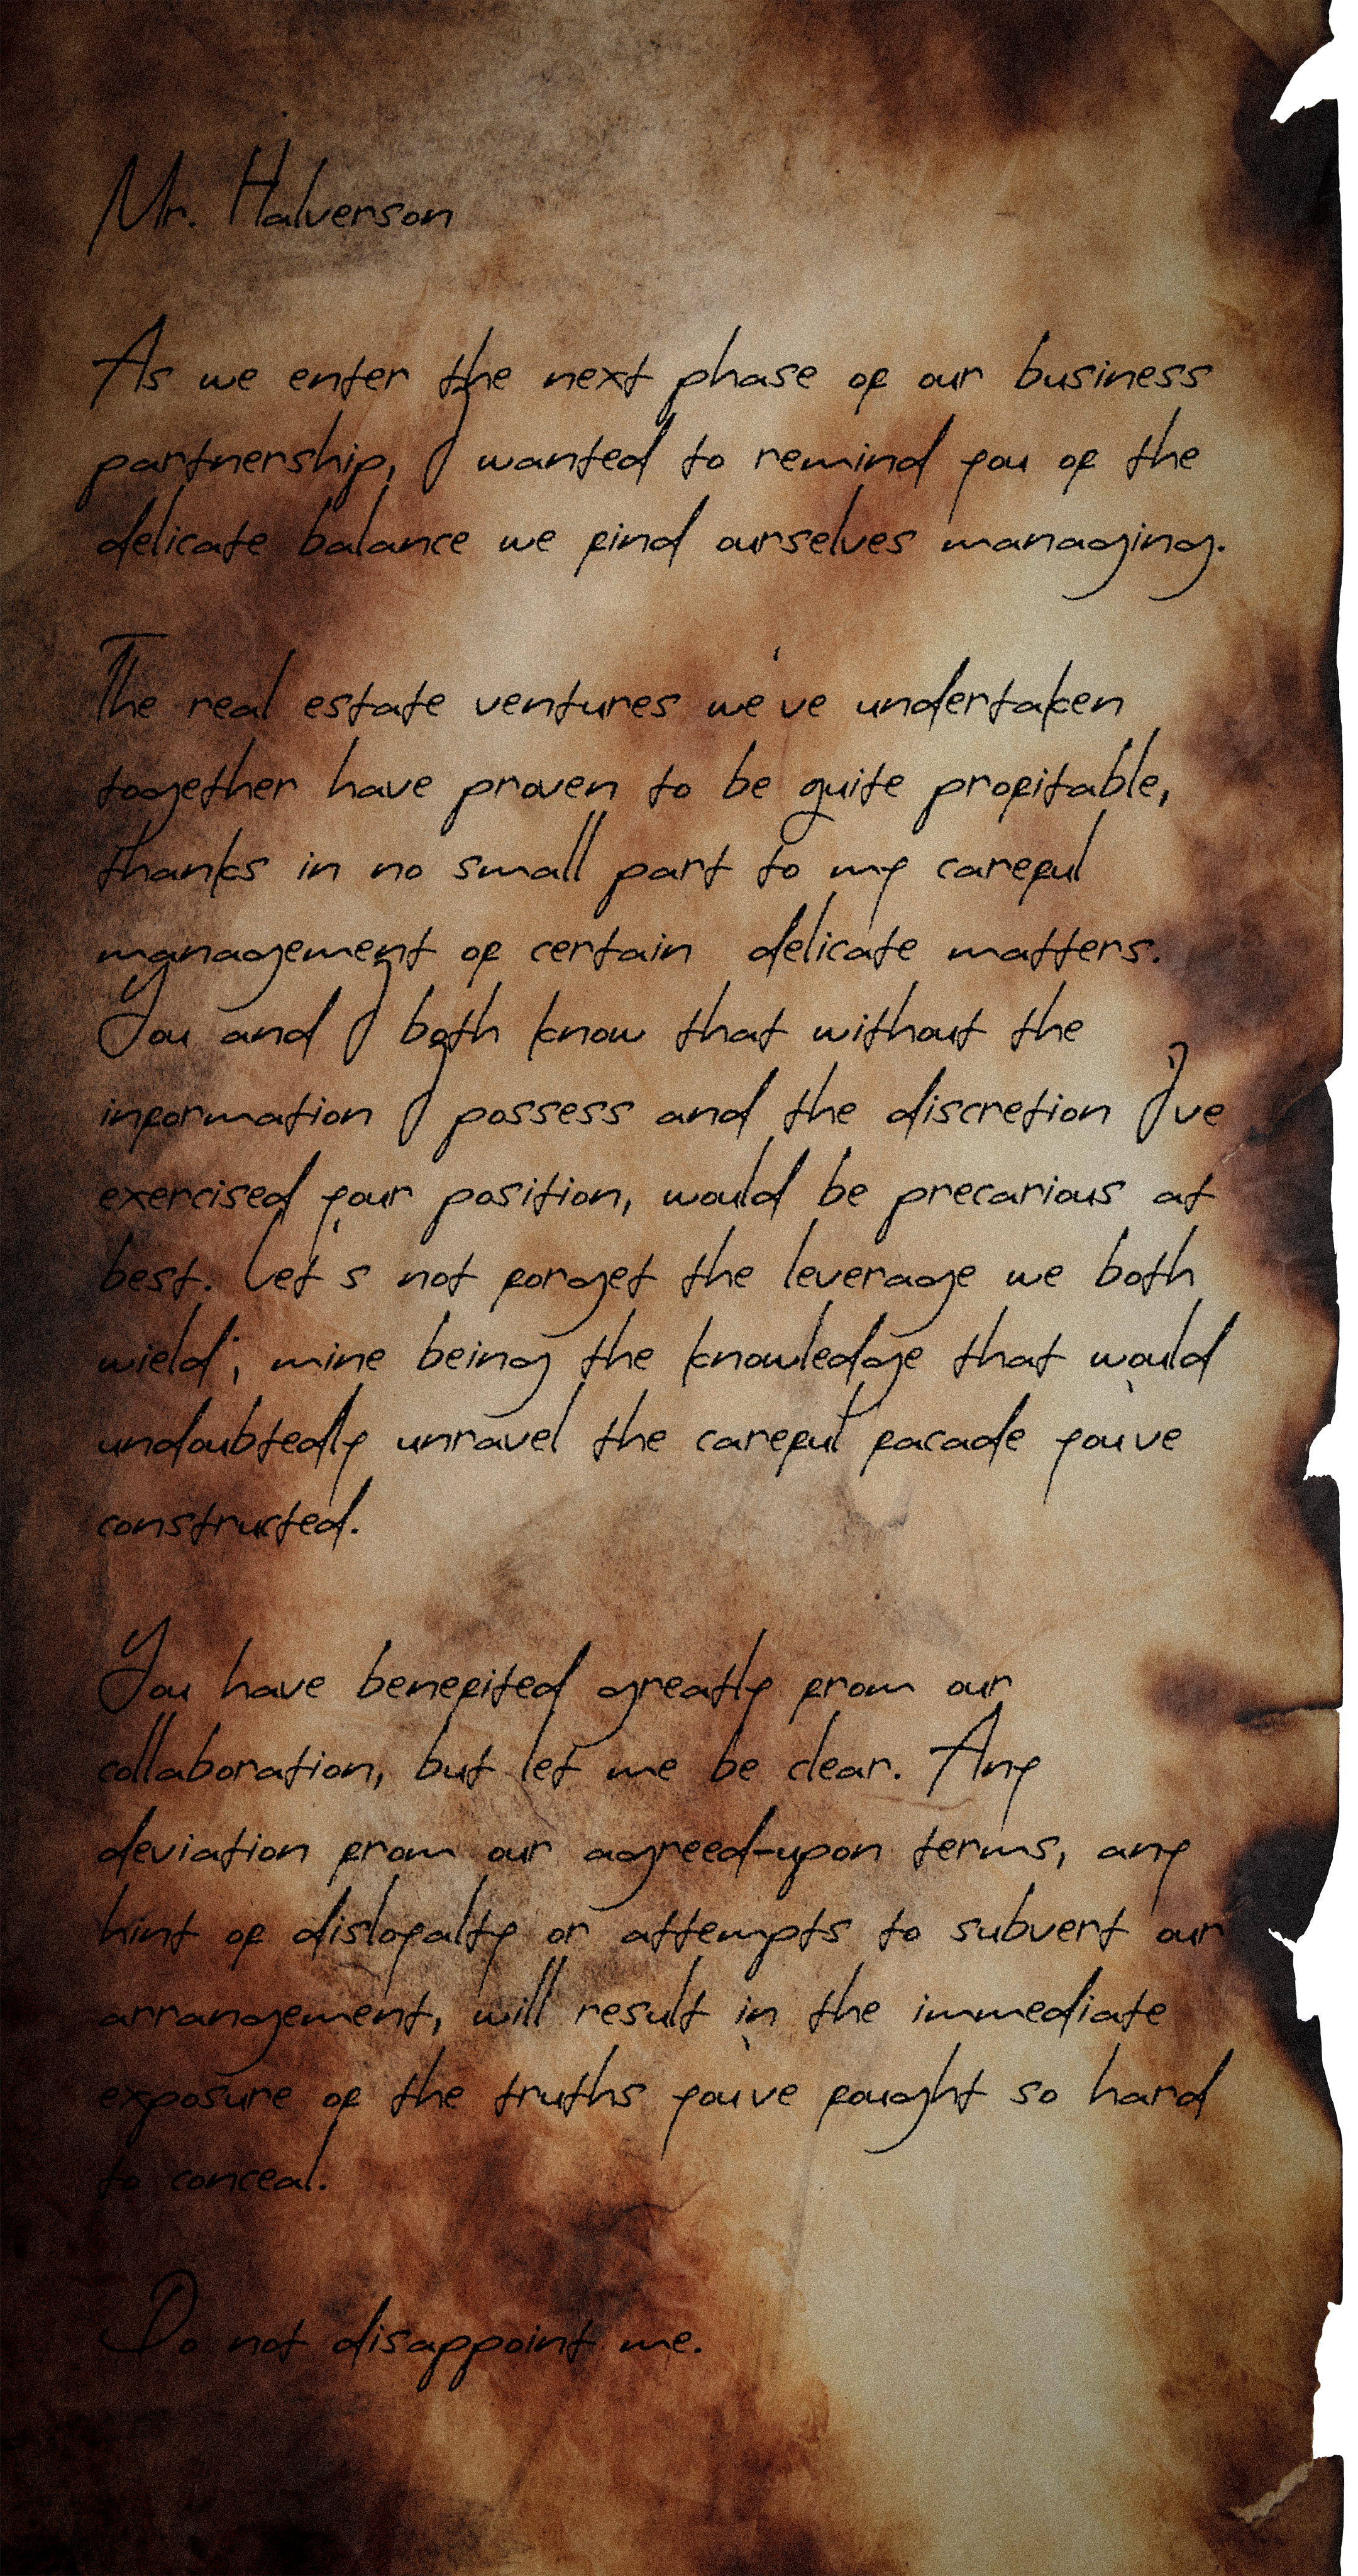 Mr. Halverson
As we enter the next phase of our business
partnership, I wanted to remind you of the
delicate balance we find ourselves managing.
The real estate ventures we've undertaken
together have proven to be quite profitable,
thanks in no small part to my careful
management of certain delicate matters.
You and I both know that without the
information I possess and the discretion I've
exercised your position, would be precarious at
best. Let's not forget the leverage we both
wield; mine being the knowledge that would
undoubtedly unravel the careful facade you've
constructed.
You have benefited greatly from our
collaboration, but let me be clear. Any
deviation from our agreed-upon terms, any
hint of disloyalty or attempts to subvert our
arrangement, will result in the immediate
exposure of the truths you've fought so hard
to conceal.
Do not disappoint me.